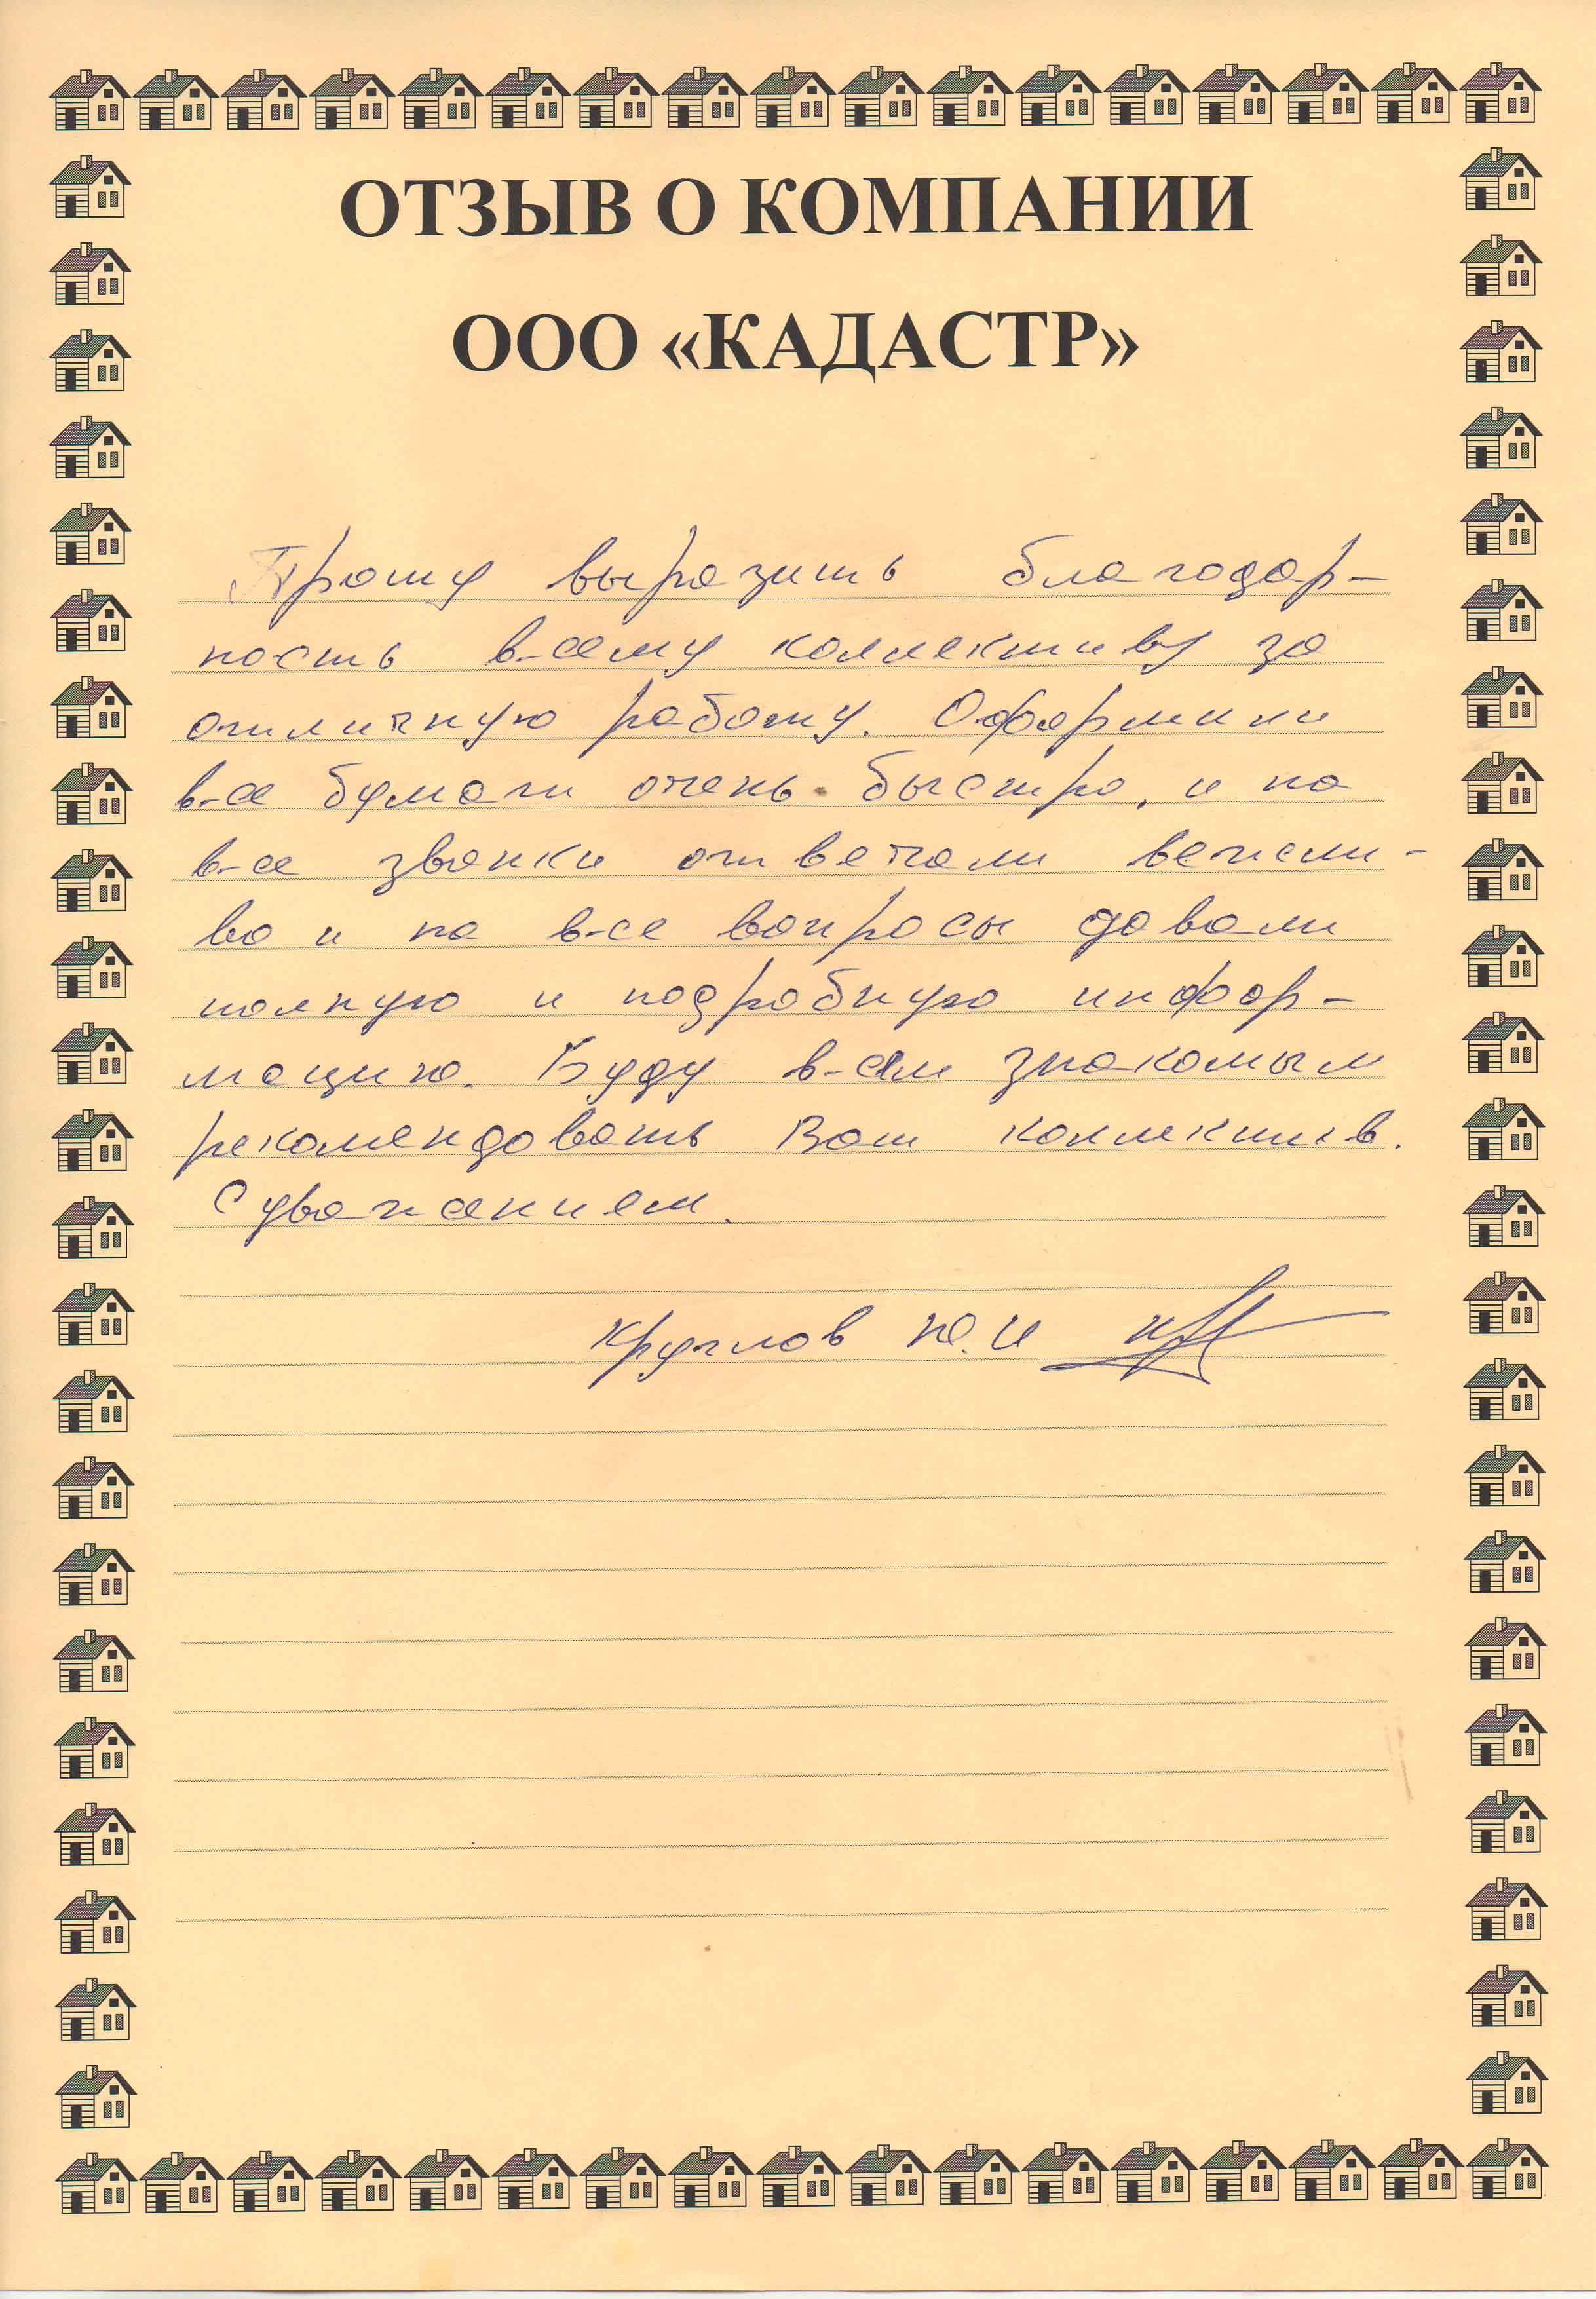 ОТЗЫВ О КОМПАНИИ
ООО «КАДАСТР»
Прошу выразить благодар-
ность всему коллективу за
отличную работу. Оформили
все бумаги очень быстро, и на
все звонки отвечали вежли-
во и на все вопросы давали
полную и подробную инфор-
мацию. Буду всем знакомым
рекомендовать Ваш коллектив.
С уважением.
Круглов Ю.И